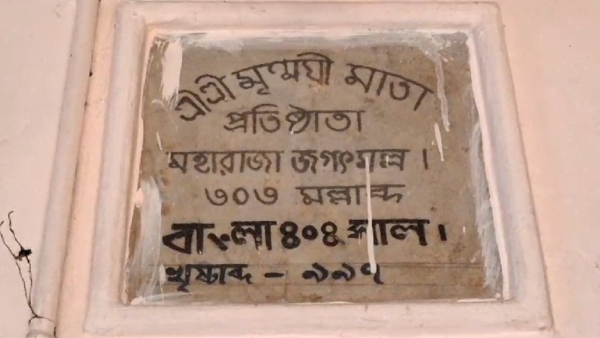 শ্রীশ্রী মৃন্ময়ী মাতা
প্রতিষ্ঠাতা
মহারাজা জগৎমল্ল।
৩০৩ মল্লাব্দ
বাংলা ৪০৪ সাল।
খৃষ্টাব্দ - ৯৯৭